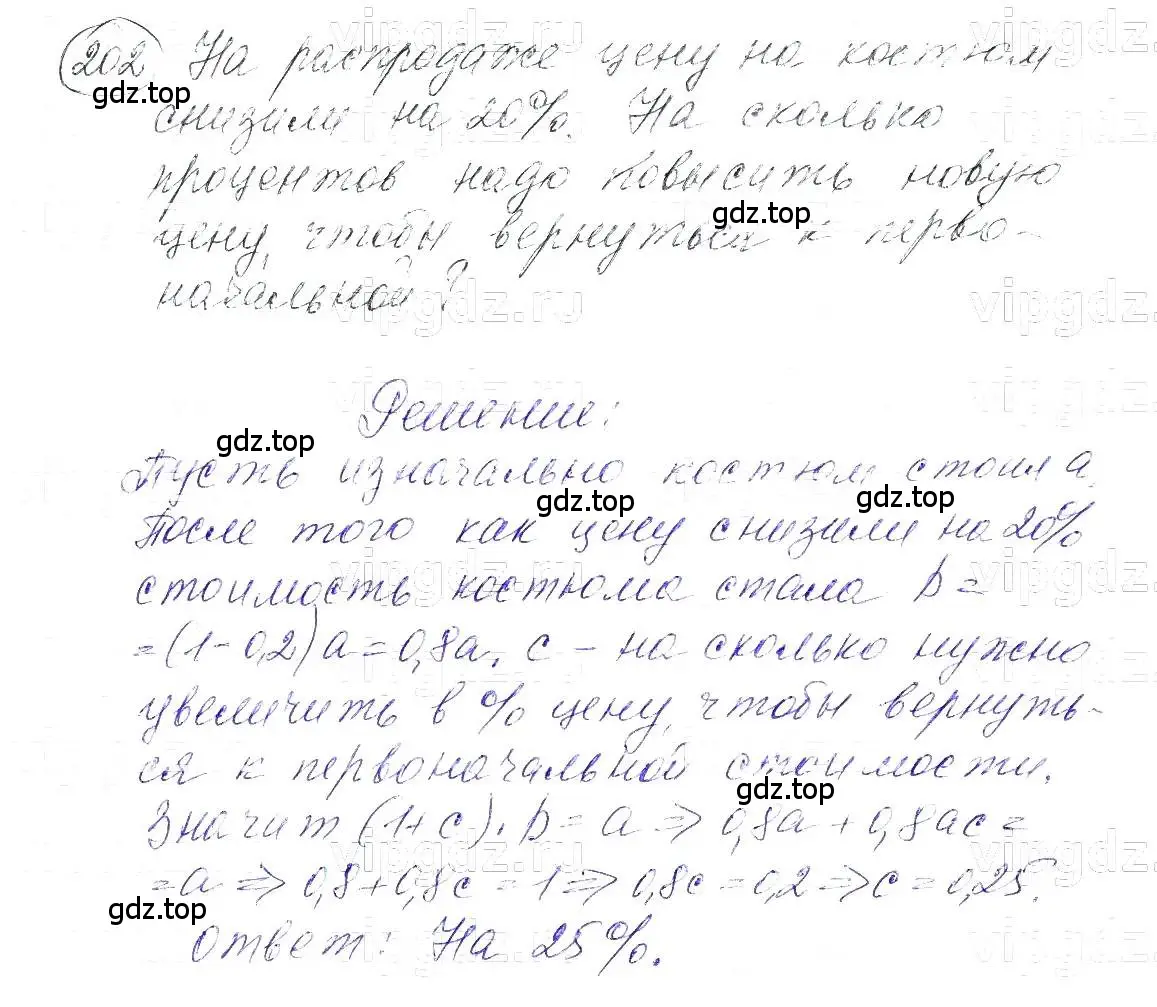 202 На распродаже цену на костюм
gdz.top
снизили на 20%. На сколько
процентов надо повысить новую
gdz.top
цену, чтобы вернуться к перво-
начальной?
Решение:
gdz.top
Пусть изначально костюм стоил а.
gdz.top gdz.top
После того как цену снизили на 20%
стоимость костюма стала b =
=(1-0,2)a=0,8a, c - на сколько нужно
увеличить в % цену, чтобы вернуть-
ся к первоначальной стоимости.
gdz.top
Значит (1+c)·b=a⇒0,8a+0,8ac=
=a⇒0,8+0,8c=1⇒0,8c=0,2⇒c=0,25.
gdz.top
Ответ: На 25%.
vipgdz.ru